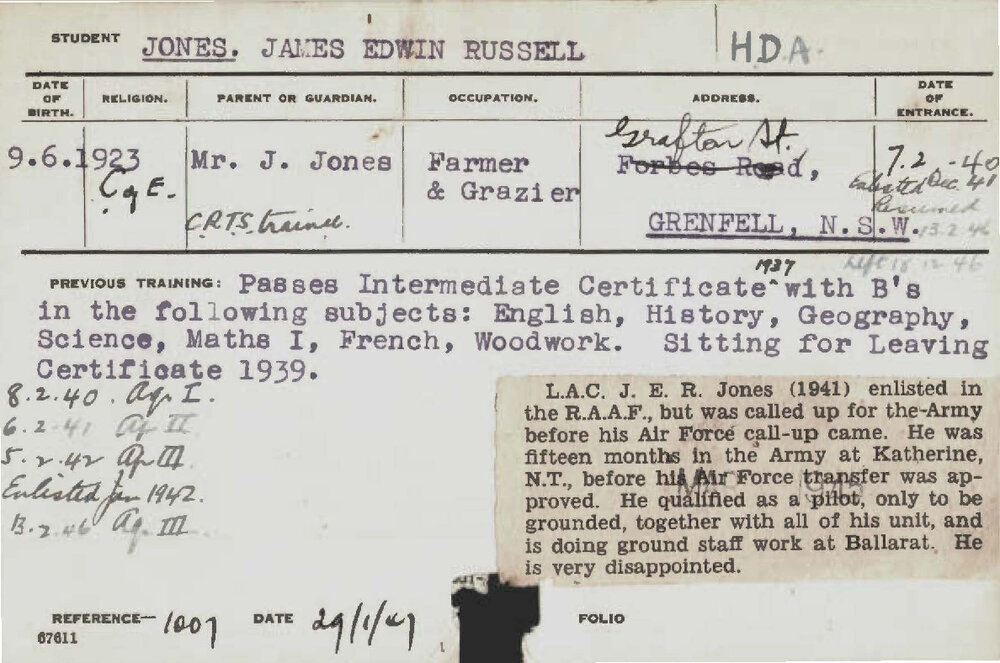 STUDENT JONES. JAMES EDWIN RUSSELL H.D.A.
DATE OF BIRTH. RELIGION. PARENT OR GUARDIAN. OCCUPATION. ADDRESS. DATE OF ENTRANCE.
9.6.1923 C of E. Mr. J. Jones Farmer Grafton St. 7.2.-40
& Grazier Forbes Road, Enlisted Dec. 41
C.R.T.S. trainee. GRENFELL, N.S.W. Resumed
13.2.46
Left 18.12.46
1937
PREVIOUS TRAINING: Passes Intermediate Certificate^with B's
in the following subjects: English, History, Geography,
Science, Maths I, French, Woodwork. Sitting for Leaving
Certificate 1939.
8.2.40. Ag. I.
6.2.41 Ag II
5.2.42 Ag III
Enlisted Jan 1942.
13.2.46 Ag. III
L.A.C. J. E. R. Jones (1941) enlisted in
the R.A.A.F., but was called up for the Army
before his Air Force call-up came. He was
fifteen months in the Army at Katherine,
N.T., before his Air Force transfer was ap-
proved. He qualified as a pilot, only to be
grounded, together with all of his unit, and
is doing ground staff work at Ballarat. He
is very disappointed.
REFERENCE— 1007 DATE 29/1/47 FOLIO
67611